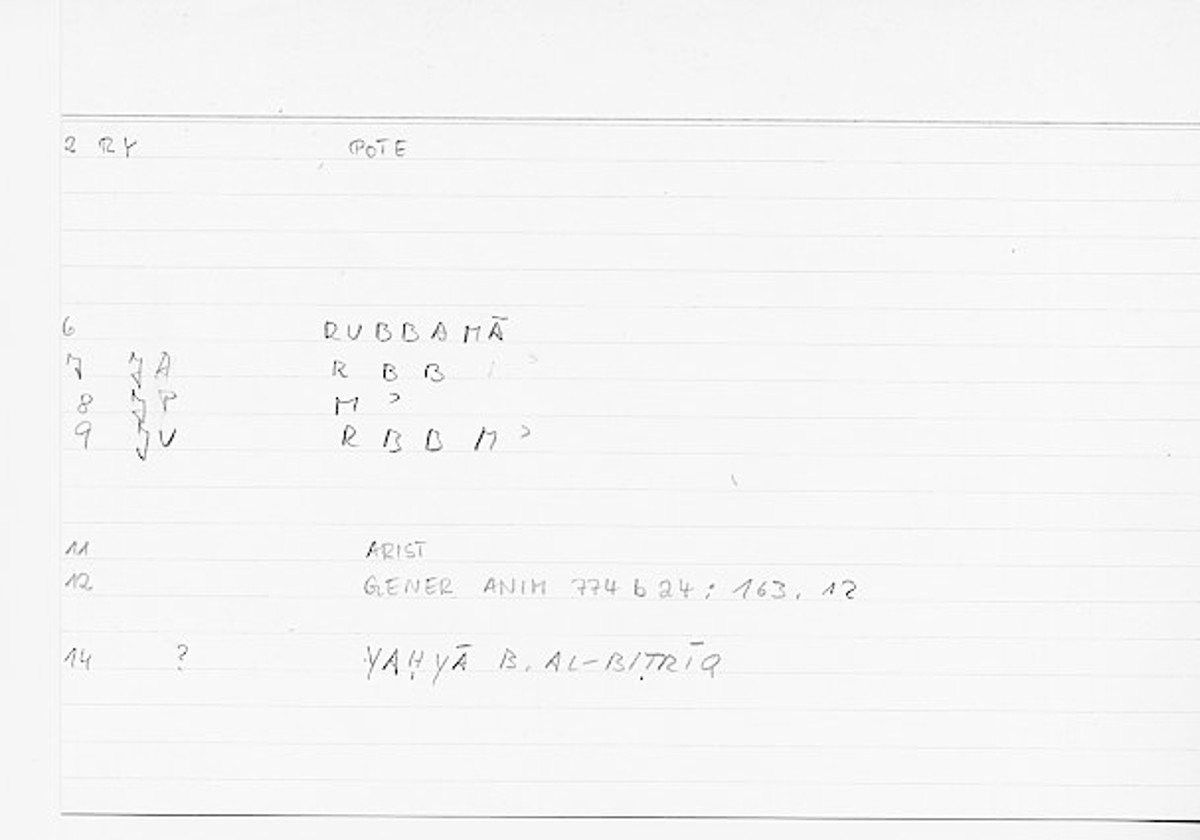 2 RY POTE
6 RUBBAMĀ
7 JA R B B
8 JP M ʾ
9 JV R B B M ʾ
11 ARIST
12 GENER ANIM 774 b 24 ; 163, 12
14 ? YAḤYĀ B. AL-BIṬRĪQ